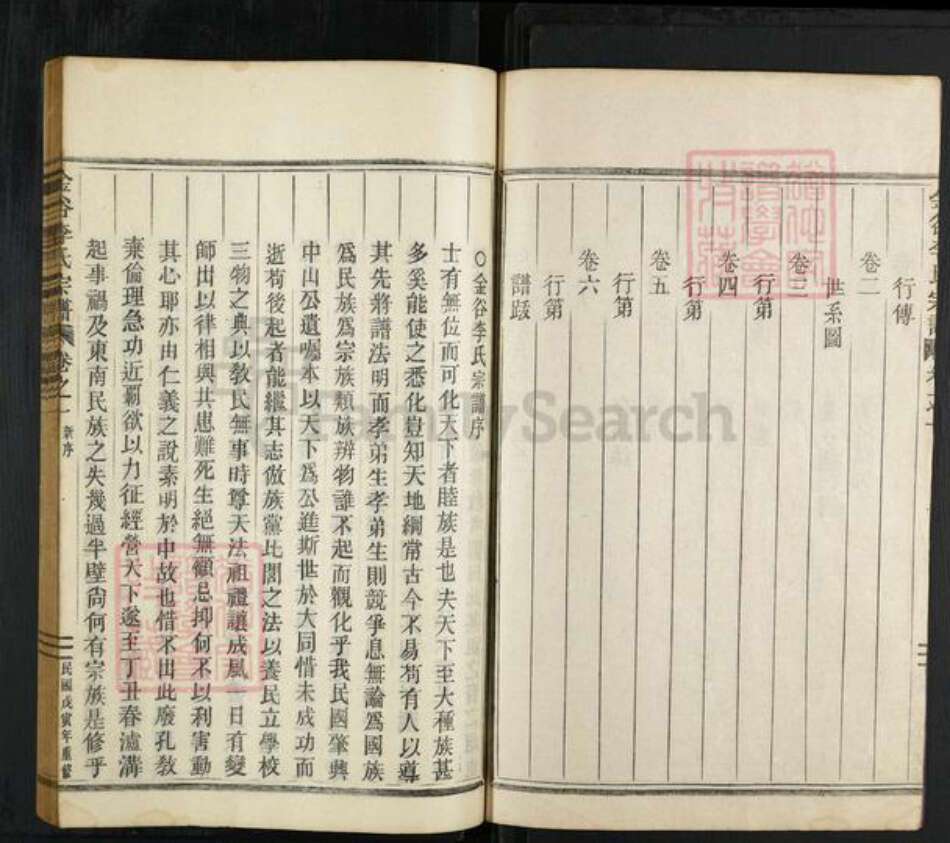 行傳
卷二
世系圖
卷三
行第
卷四
行第
卷五
行第
卷六
行第
譜跋
○金谷李氏宗譜序
士有無位而可化天下者睦族是也夫天下至大種族甚
多奚能使之悉化豈知天地綱常古今不易苟有人以導
其先將譜法明而孝弟生孝弟生則競爭息無論爲國族
爲民族爲宗族類族辨物誰不起而觀化乎我民國肇興
中山公遺囑本以天下爲公進斯世於大同惜未成功而
逝苟後起者能繼其志倣族黨比閭之法以養民立學校
三物之典以敎民無事時尊天法祖禮讓成風一日有變
師出以律相與共患難死生絕無顧忌抑何不以利害動
其心耶亦由仁義之說素明於中故也惜不出此廢孔敎
棄倫理急功近霸欲以力征經營天下遂至丁丑春瀘溝
起事禍及東南民族之失幾過半壁尙何有宗族是修乎
金谷李氏宗譜
卷之一
新序
民國戊寅年重修
FamilySearch